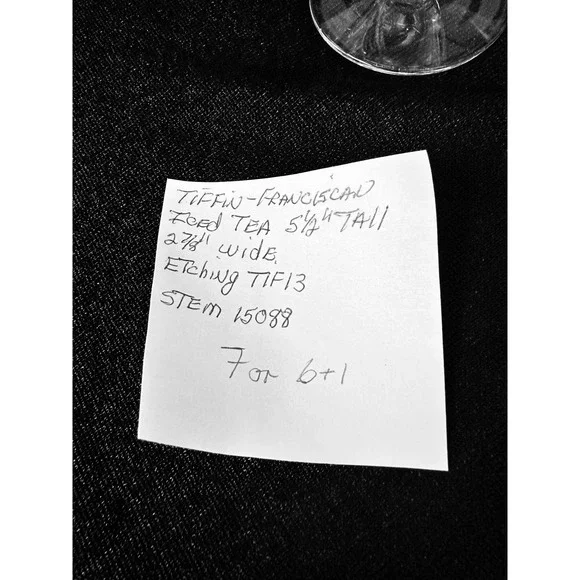 TIFFIN-FRANCISCAN
ICED TEA 5 1/2" TAll
2 7/8" WIDE
ETCHING TIF13
STEM 15088
7 or 6+1